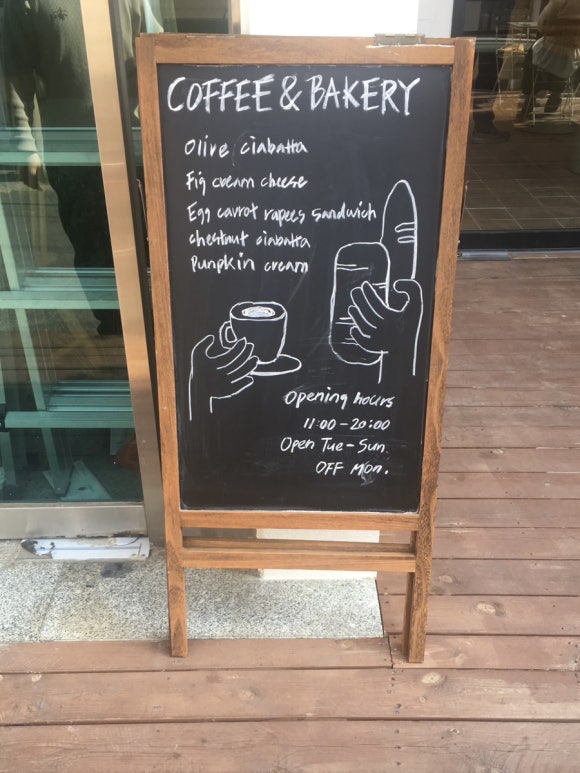 COFFEE & BAKERY
Olive ciabatta
Fig cream cheese
Egg carrot rapees sandwich
chestnut ciabatta
Punpkin cream
Opening hours
11:00-20:00
Open Tue-Sun.
OFF Mon.